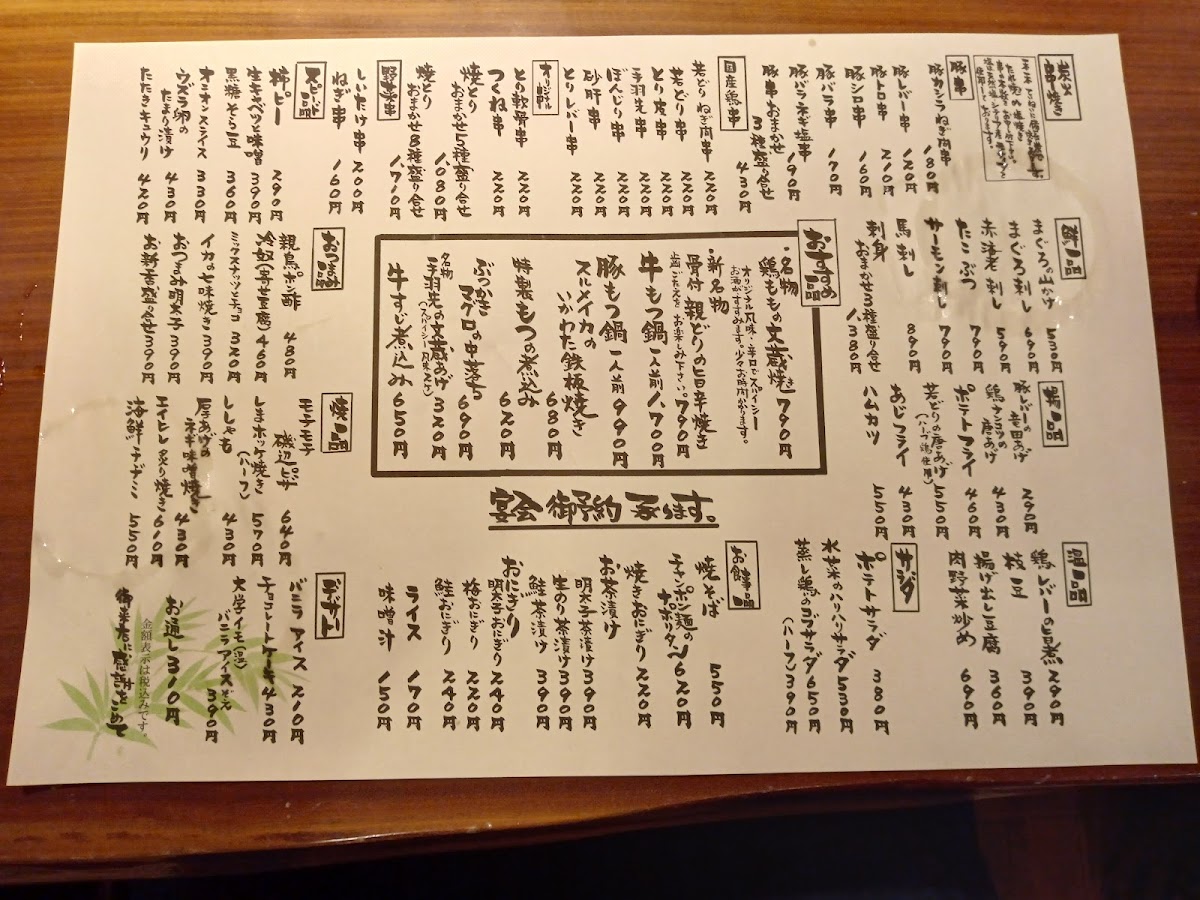 炭火串焼き
豚串
豚カシラねぎ肉串 180円
豚レバー串 120円
豚トロ串 210円
豚シロ串 160円
豚バラ串 170円
豚バラネギ塩串 190円
豚串おまかせ3種盛り合せ 430円
国産鶏串
若どりねぎ肉串 220円
若どり串 220円
とり皮串 220円
手羽先串 220円
ぼんじり串 220円
砂肝串 220円
とりレバー串 220円
オリジナル品
とり軟骨串 220円
つくね串 220円
焼とりおまかせ5種盛り合せ 1,080円
焼とりおまかせ8種盛り合せ 1,710円
野菜串
しいたけ串 200円
ねぎ串 160円
スピード品
柿ピー 290円
生キャベツと味噌 390円
黒糖そら豆 360円
オニオンスライス 330円
ウズラ卵のたまり漬け 430円
たたきキュウリ 420円
鮮品
まぐろの山かけ 530円
まぐろ刺し 690円
赤海老刺し 590円
たこぶつ 790円
サーモン刺し 790円
馬刺し 890円
刺身おまかせ3種盛り合せ 1,380円
おすすめ品
・名物 鶏ももの文蔵焼き 790円
オリジナル風味・辛口でスパイシー
お酒がすすみます。少々お時間かかります。
・新名物 骨付 親どりの旨辛焼き 790円
歯ごたえをお楽しみ下さい。
牛もつ鍋 一人前 1,700円
豚もつ鍋 一人前 990円
スルメイカのいかわた鉄板焼き 680円
特製もつの煮込み 620円
ぶつかけマグロの中落ち 690円
名物 手羽先の文蔵あげ 320円
(スパイシー風味 2ケ)
牛すじ煮込み 650円
おつまみ品
親鳥ポン酢 480円
冷奴(寄せ豆腐) 460円
ミックスナッツとチョコ 320円
イカの一味焼き 390円
おつまみ明太子 390円
お新香盛り合せ 390円
揚品
豚レバーの竜田あげ 290円
鶏ナンコツの唐あげ 430円
ポテトフライ 460円
若どりの唐あげ 550円
(ハーブ鶏使用)
あじフライ 430円
ハムカツ 550円
焼品
モチモチ磯辺ピザ 640円
しまホッケ焼き(ハーフ) 570円
ししゃも 430円
厚あげのネギ味噌焼き 430円
エイヒレ炙り焼き 610円
海鮮チヂミ 550円
宴会御予約承ります。
温品
鶏レバーの旨煮 290円
枝豆 390円
揚げ出し豆腐 360円
肉野菜炒め 690円
サラダ
ポテトサラダ 380円
水菜のハリハリサラダ 530円
蒸し鶏のゴマサラダ 650円
(ハーフ) 390円
お食事品
焼そば 550円
チャンポン麺のナポリタン 620円
焼きおにぎり 220円
お茶漬け
明太子茶漬け 390円
生のり茶漬け 390円
鮭茶漬け 390円
おにぎり
明太子おにぎり 240円
梅おにぎり 220円
鮭おにぎり 240円
ライス 170円
味噌汁 150円
デザート
バニラアイス 210円
チョコレートケーキ 430円
大学イモ(温)バニラアイス添え 390円
お通し 310円
金額表示は税込みです。
御来店に感謝をこめて